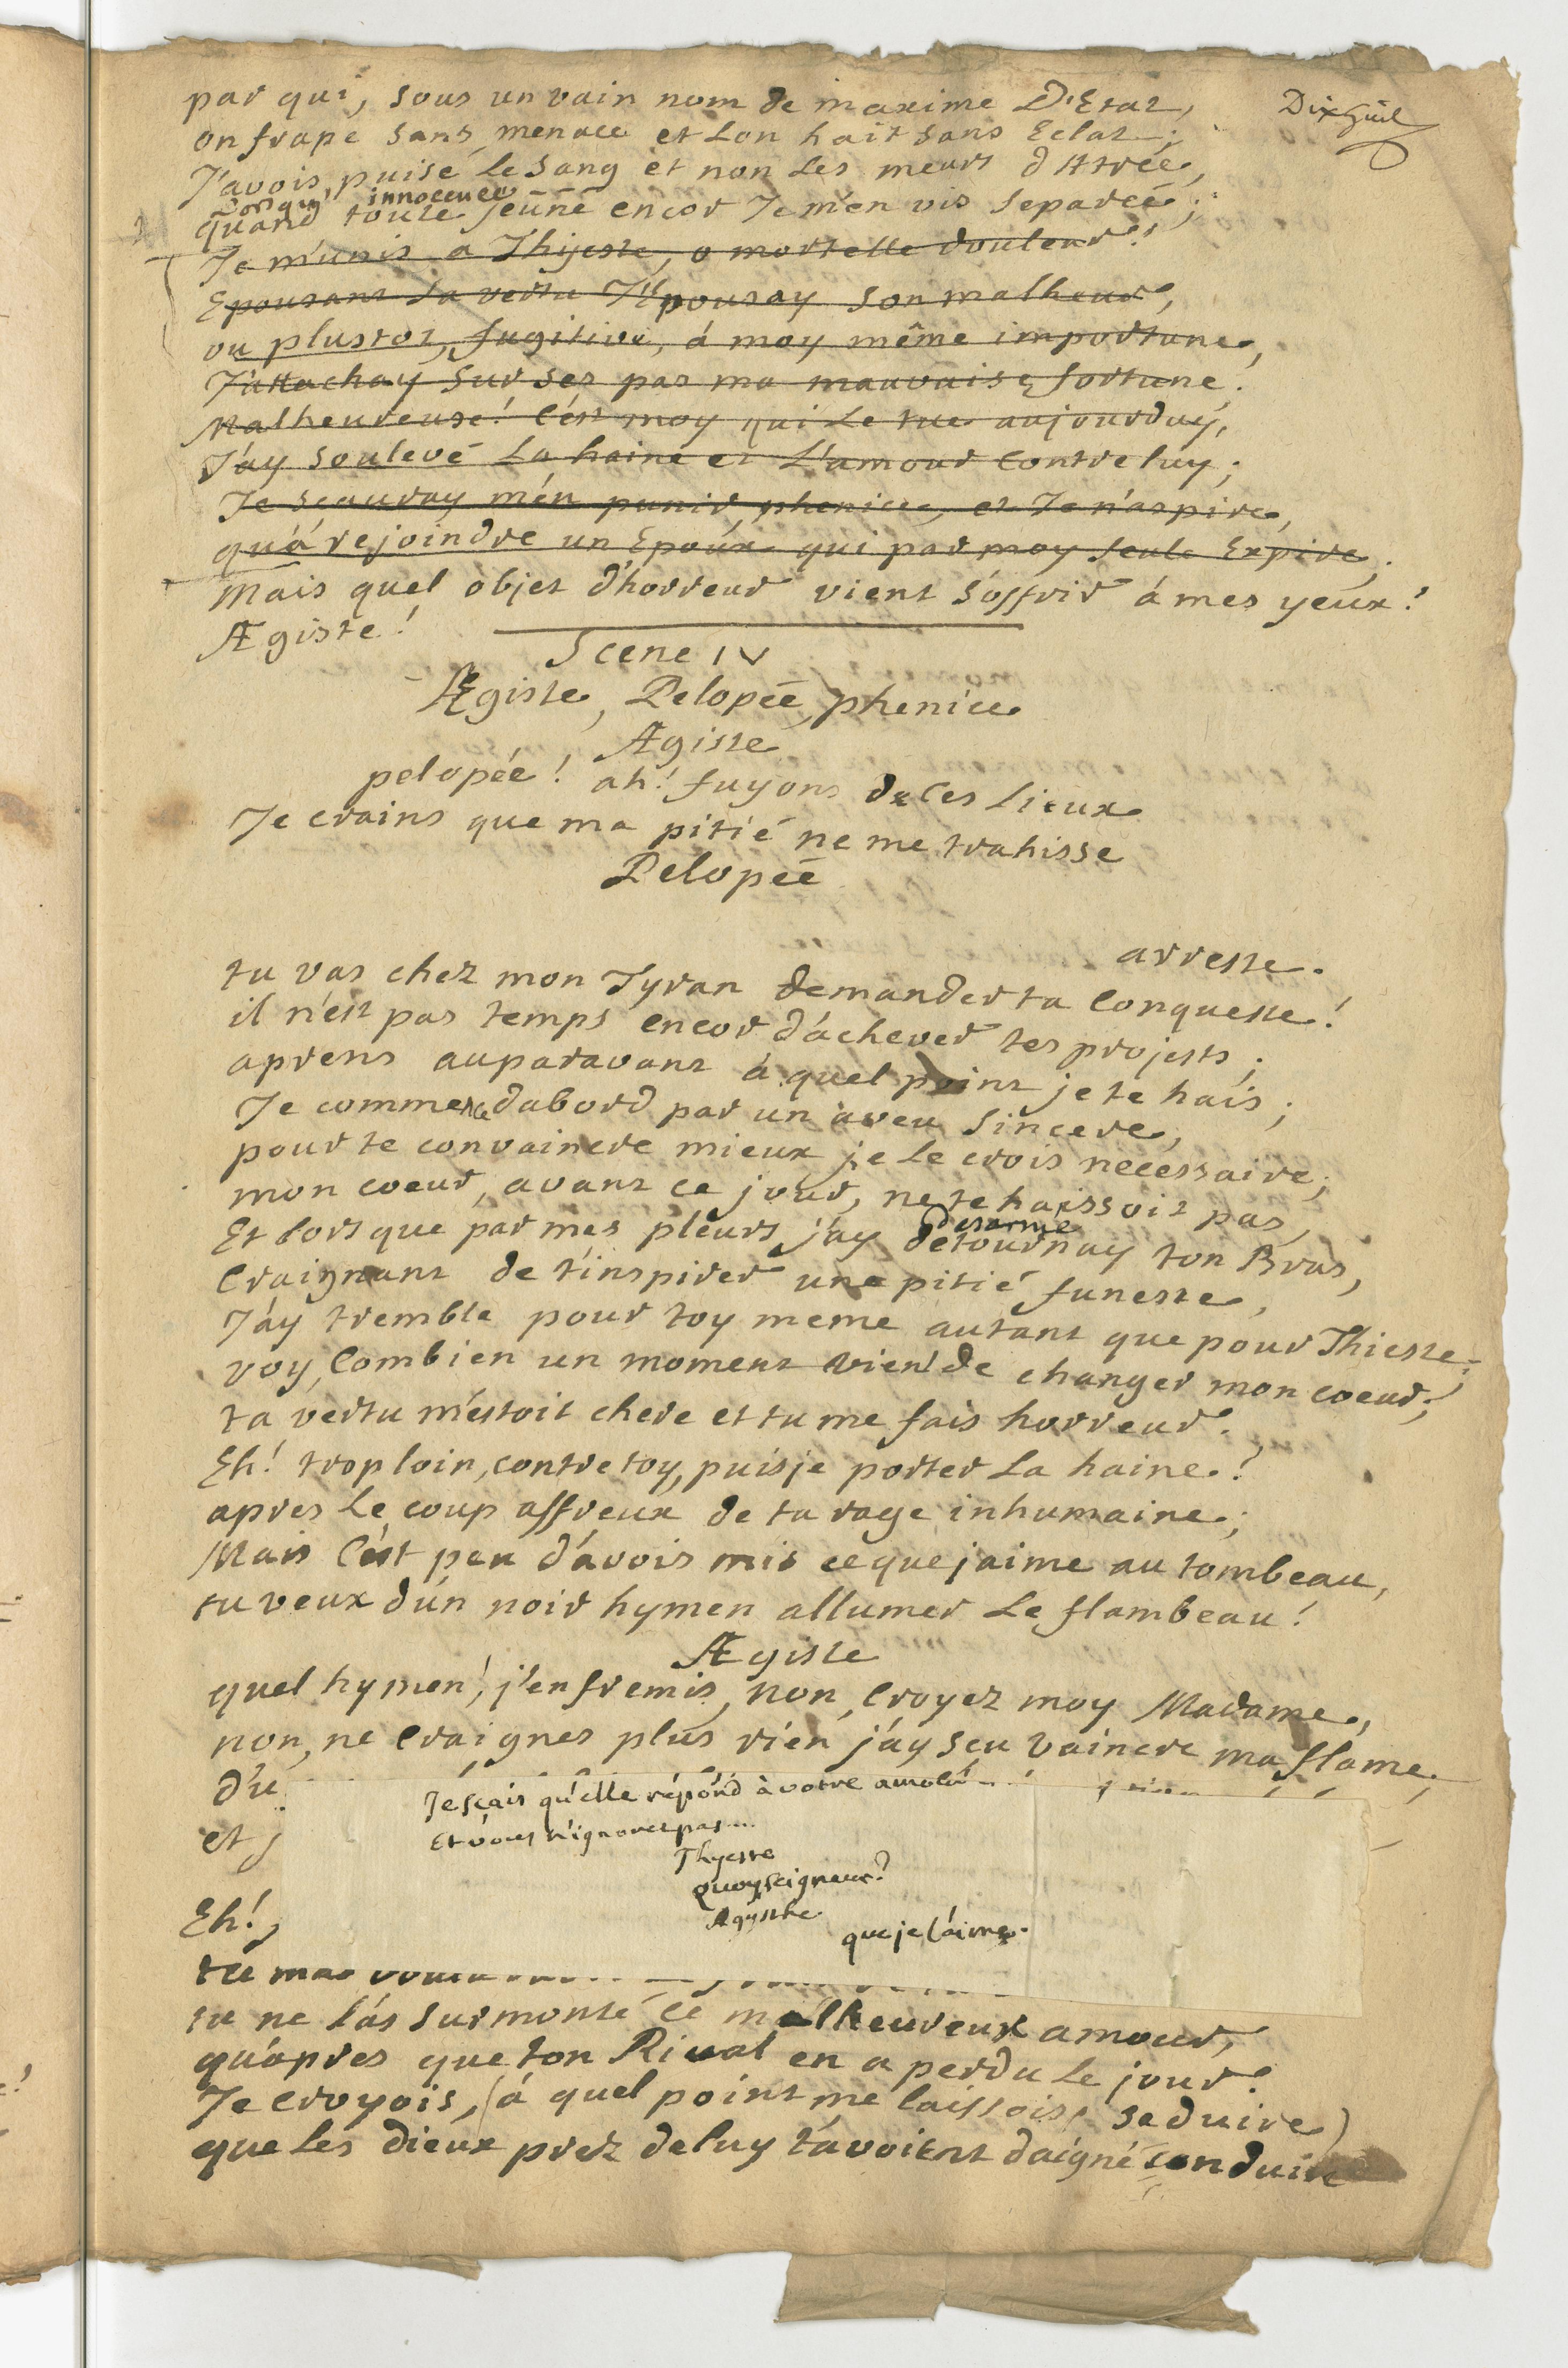 par qui, sous un vain nom de maxime D'Etat,
Dix huit
on frape sans menace et Lon hait sans Eclat;
J'avois puisé le sang et non les meurs d'Atrée,
Lorsqu' innocente
quand toute jeune encor Je m'en vis separée;
Je m'unis a Thyeste, o mortelle douleur!
Epousant sa vertu J'Epousay son malheur,
ou plustot, fugitive, á moy même importune,
J'attachay sur ses pas ma mauvaise fortune.
Malheureuse! C'est moy qui le tue aujourduy,
J'ay soulevé La haine et L'amour Contre luy;
Je scauray m'en punir, phenice, et Je n'aspire,
qu'á rejoindre un Epoux qui par moy seule Expire;
Mais quel objet d'horreur vient s'offrir á mes yeux!
Ægiste!
Scene IV
Ægiste, Pelopée, phenice
Ægiste
pelopée! ah! fuyons de Ces Lieux
Je crains que ma pitié ne me trahisse
Pelopée
arreste.
tu vas chez mon Tyran demander ta Conqueste!
il n'est pas temps encor d'achever tes projets;
aprens auparavant á quel point je te hais;
Je commence dabord par un aveu sincere,
pour te convaincre mieux je le crois necessaire;
mon coeur, avant ce jour, ne te haissoit pas,
desarmé
Et lors que par mes pleurs j'ay detournay ton Bras,
Craignant de t'inspirer une pitié funeste,
J'ay tremblé pour toy meme autant que pour Thieste;
voy, Combien un moment vien de changer mon coeur;
ta vertu m'estoit chere et tu me fais horreur.
Eh! trop loin, contre toy, puisje porter La haine?
apres Le coup affreux de ta rage inhumaine;
Mais C'est peu d'avois mis ce que jaime au tombeau,
tu veux d'un noir hymen allumer Le flambeau!
Ægiste
quel hymen! j'en fremis, non, Croyez moy Madame,
non, ne Craignes plus rien j'ay sçu vaincre ma flame,
d'u
Je sçais qu'elle répond à votre
et j
Et vous n'ignorez pas...
Thyeste
Quoy seigneur?
Ægysthe
Eh!
que je l'aime.
tu mas voulu
tu ne l'ás surmonté Ce malheureux amour,
qu'apres que ton Rival en a perdu Le jour.
Je Croyois, (á quel point me laissois seduire)
que Les dieux prez de luy t'avoient daigné conduire